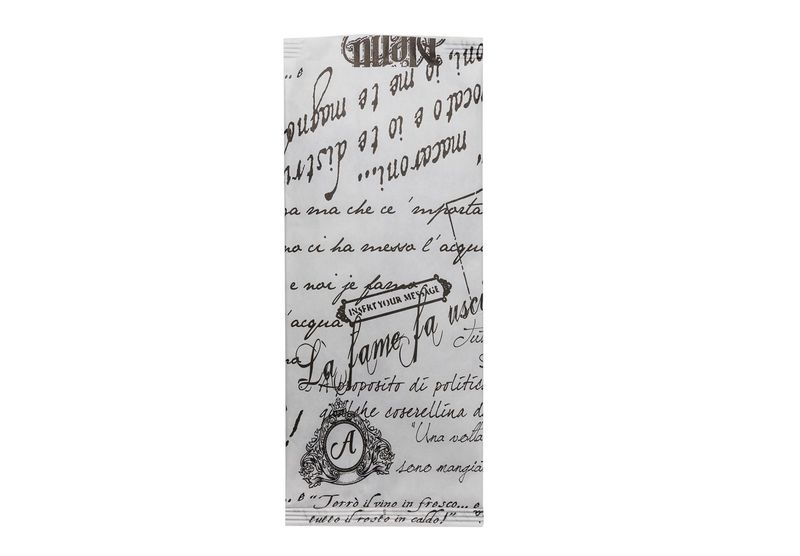 Menu
..."
oni, io me te magno
vocato e io te distru
macaroni..."
na ma che ce 'mporta
no ci ha messo l'acqua
e noi je famo
INSERT YOUR MESSAGE
l'acqua
La fame fa usci
A proposito di politica
qualche coserellina d
"Una volta
A
sono mangia
..."
"Terrò il vino in fresco...
tutto il resto in caldo!"